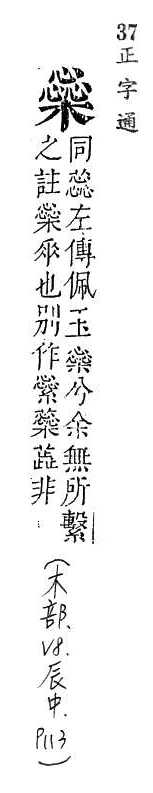 37 正字通
橤
同蕊左傳佩玉橤兮余無所繫
之註橤𠂹也別作繠蘂蕋非
(木部、V8.辰中.P113)